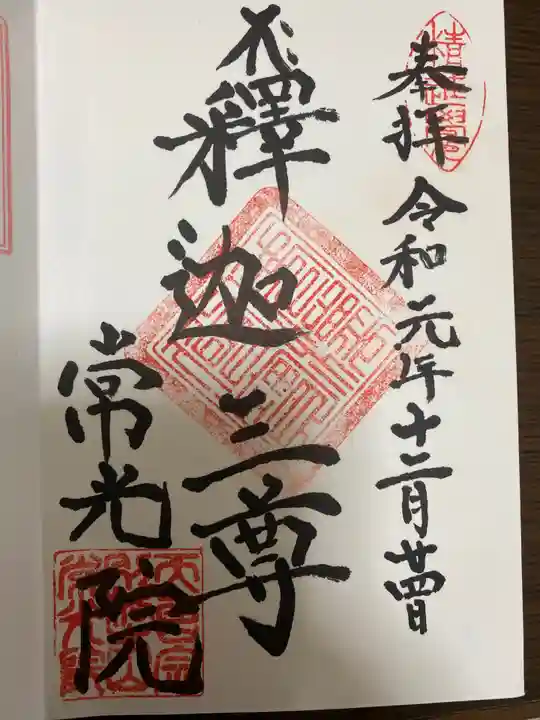 奉拝 令和元年十二月廿四日
釋迦三尊
常光院